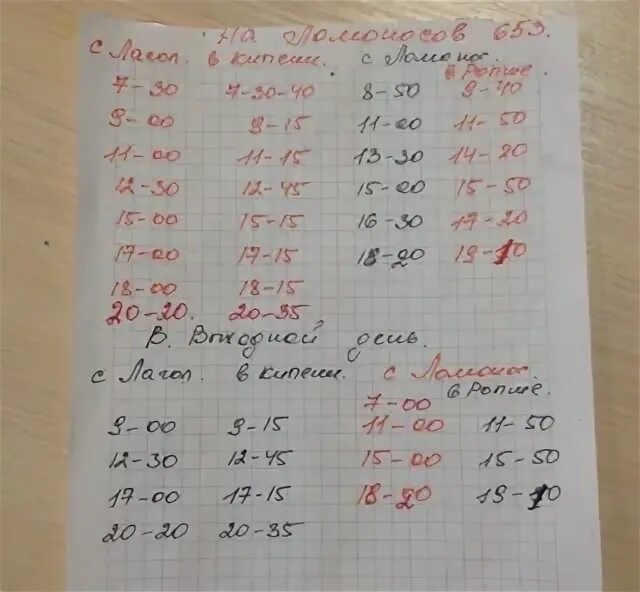 На Ломоносов 653.
с Лагол. в Кипени. с Ломонос.
в Ропше.
7-30 7-30-40 8-50 9-40
9-00 9-15 11-00 11-50
11-00 11-15 13-30 14-20
12-30 12-45 15-00 15-50
15-00 15-15 16-30 17-20
17-00 17-15 18-20 19-10
18-00 18-15
20-20. 20-35
В. Выходной день.
с Лагол. в Кипени. с Ломонос.
в Ропше.
7-00
9-00 9-15 11-00 11-50
12-30 12-45 15-00 15-50
17-00 17-15 18-20 19-10
20-20 20-35